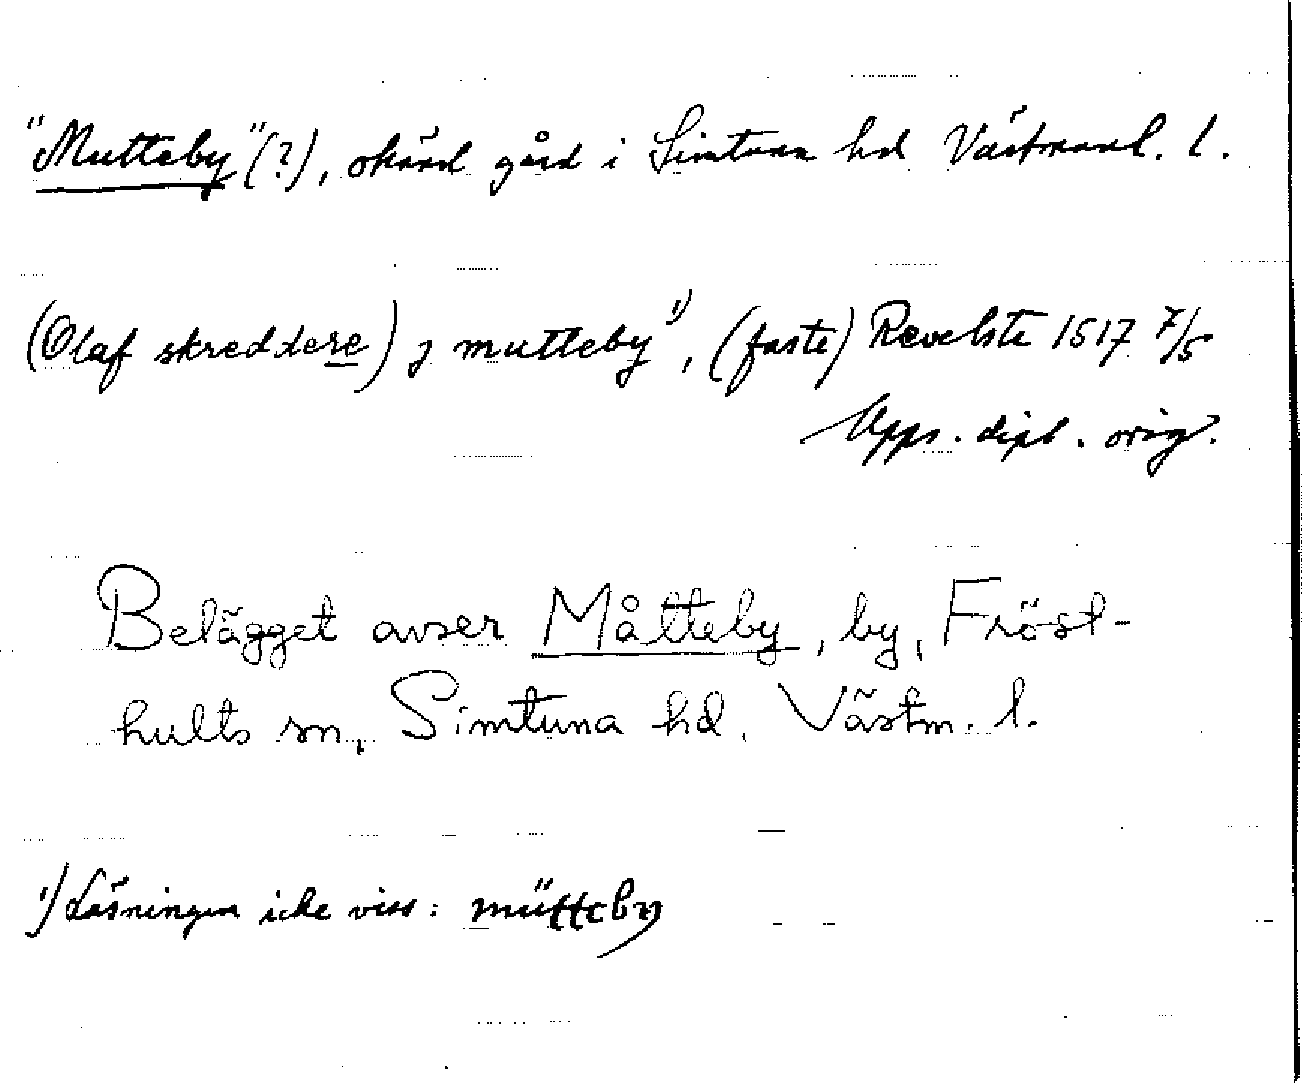 "Mutteby" (?), okänd gård i Simtuna hd Västmanl. l.
(Olaf skreddere) j mutteby ¹⁾, (faste) Revelste 1517 7/5
Upps. dipl. orig.
Belägget avser Måtteby, by, Fröst-
hults sn, Simtuna hd, Västm. l.
¹⁾ Läsningen icke viss: mütteby